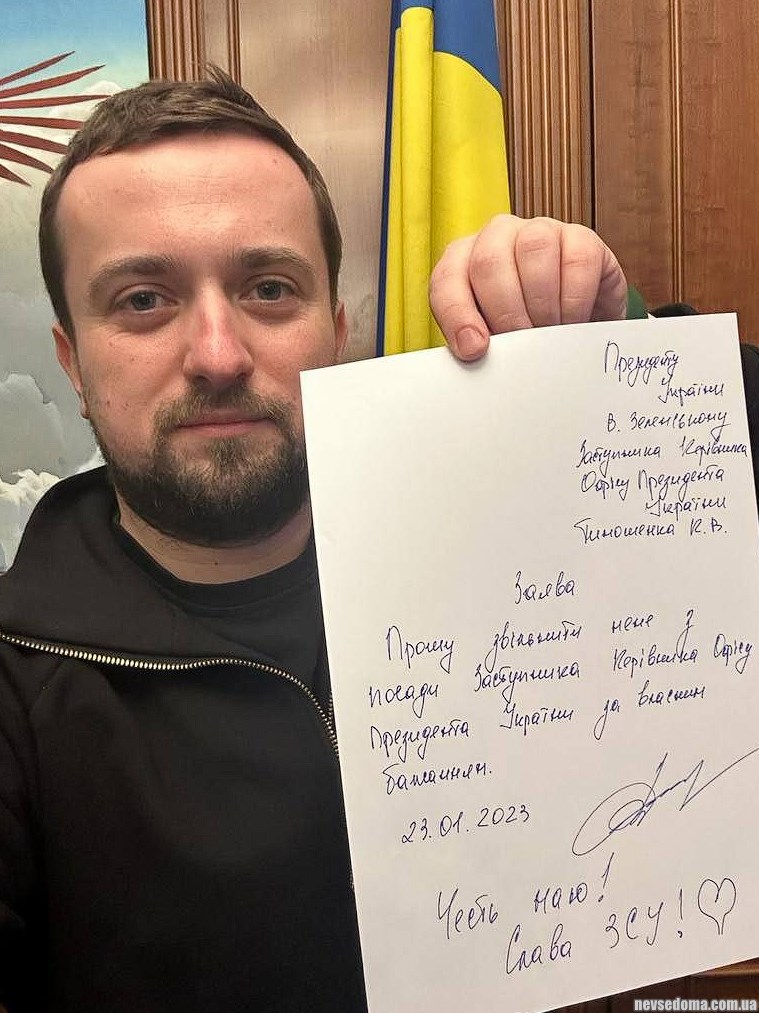 Президенту
України
В. Зеленському
Заступника Керівника
Офісу Президента
України
Тимошенка К. В.
Заява
Прошу звільнити мене з
посади Заступника Керівника Офісу
Президента України за власним
бажанням.
23.01.2023
Честь маю!
Слава ЗСУ!
nevsedoma.com.ua